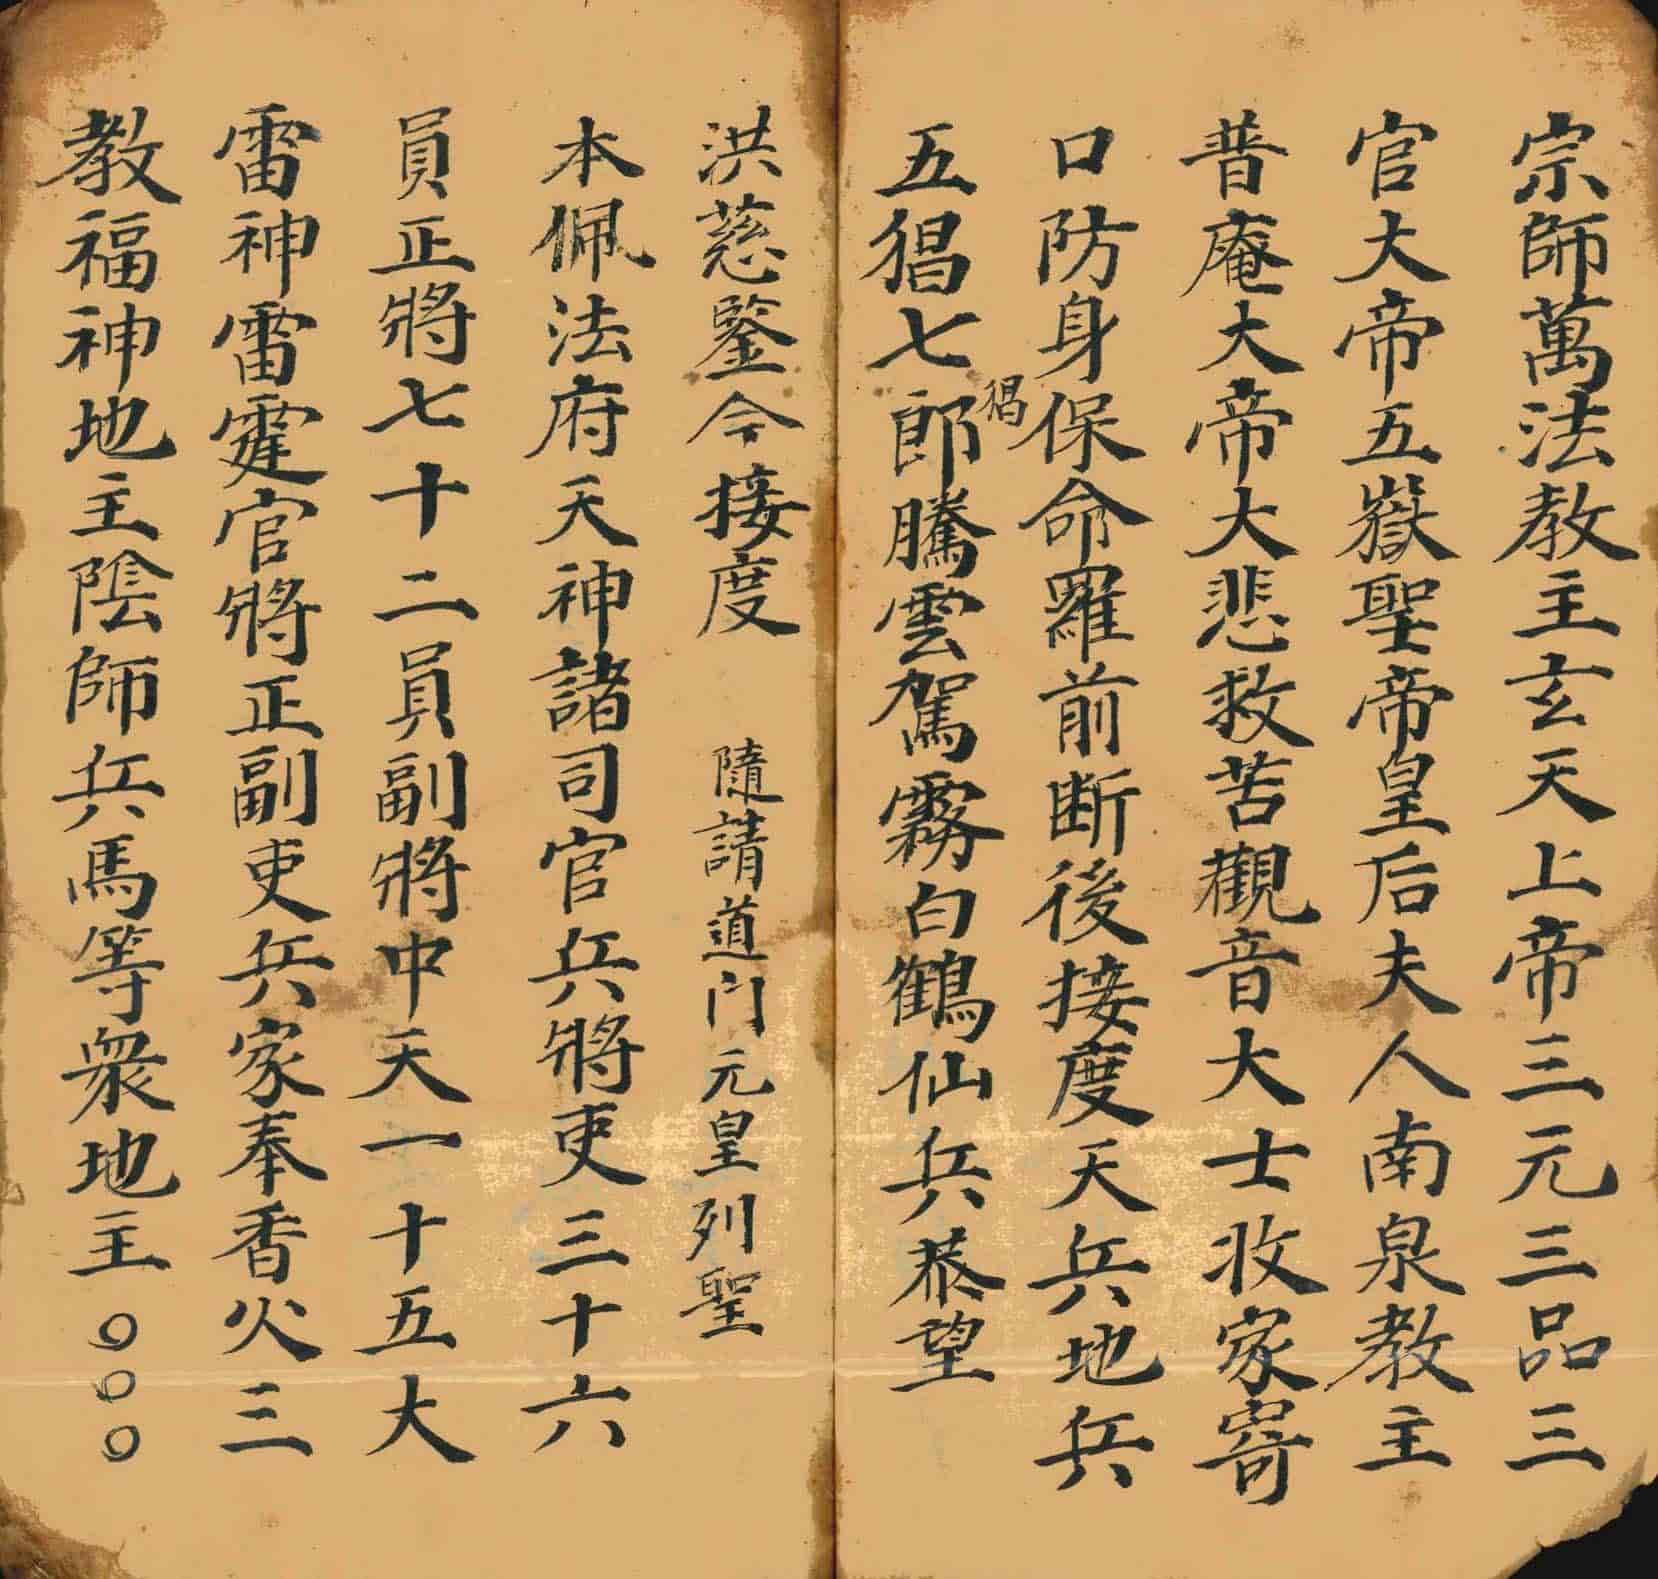 宗師萬法教主玄天上帝三元三品三
官大帝五嶽聖帝皇后夫人南泉教主
普庵大帝大悲救苦觀音大士收家寄
口防身保命羅前断後接度天兵地兵
猖
五猖七郎騰雲駕霧白鶴仙兵恭望
洪慈鑒令接度 隨請道門元皇列聖
本佩法府天神諸司官兵將吏三十六
員正將七十二員副將中天一十五大
雷神雷霆官將正副吏兵家奉香火三
教福神地主陰師兵馬等衆地主〇〇〇